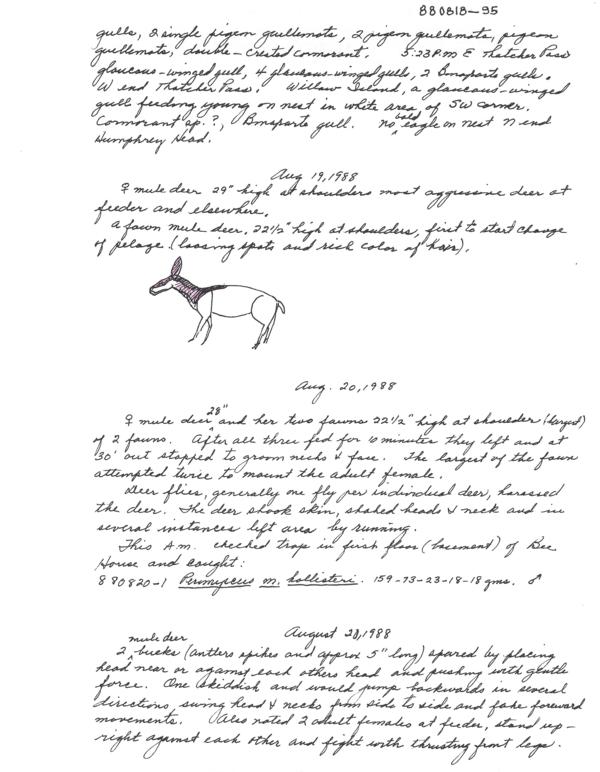 880818-95
gulls, 2 single pigeon guillemots, 2 pigeon guillemots, pigeon
guillemots, double-crested cormorant. 5:23 P.M E Thatcher Pass
glaucous-winged gull, 4 glaucous-winged gulls, 2 Bonaparte gulls.
W end Thatcher Pass. Willow Island, a glaucous-winged
gull feeding young on nest in white area of SW corner.
Cormorant sp.?, Bonaparte gull. No bald eagle on nest N end
Humphrey Head.
Aug 19, 1988
♀ mule deer 29" high at shoulders most aggressive deer at
feeder and elsewhere.
A fawn mule deer, 22 1/2" high at shoulders, first to start change
of pelage (loosing spots and rich color of hair).
Aug. 20, 1988
♀ mule deer 28" and her two fawns 22 1/2" high at shoulder (largest)
of 2 fawns. After all three fed for 10 minutes they left and at
30' out stopped to groom necks & face. The largest of the fawn
attempted twice to mount the adult female.
Deer flies, generally one fly per individual deer, harassed
the deer. The deer shook skin, shaked heads & neck and in
several instances left area by running.
This A.M. checked traps in first floor (basement) of Bee
House and caught:
880820-1 Peromyscus m. hollisteri. 159-73-23-18-18 gms. ♂
August 28, 1988
2 mule deer bucks (antlers spikes and approx 5" long) spared by placing
head near or against each others head and pushing with gentle
force. One skiddish and would jump backwards in several
directions, swing head & necks from side to side and fake foreward
movements. Also noted 2 adult females at feeder, stand up-
right against each other and fight with thrusting front legs.